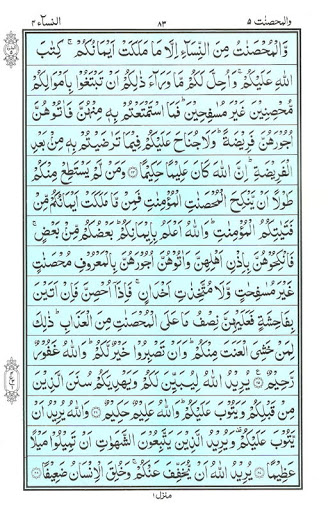 والمحصنت ٥ ٨٣ النسآء ٤
وَّالْمُحْصَنٰتُ مِنَ النِّسَآءِ اِلَّا مَا مَلَكَتْ اَيْمَانُكُمْ ۚ كِتٰبَ
اللّٰهِ عَلَيْكُمْ ۚ وَاُحِلَّ لَكُمْ مَّا وَرَآءَ ذٰلِكُمْ اَنْ تَبْتَغُوْا بِاَمْوَالِكُمْ
مُّحْصِنِيْنَ غَيْرَ مُسٰفِحِيْنَ ؕ فَمَا اسْتَمْتَعْتُمْ بِهٖ مِنْهُنَّ فَاٰتُوْهُنَّ
اُجُوْرَهُنَّ فَرِيْضَةً ؕ وَلَا جُنَاحَ عَلَيْكُمْ فِيْمَا تَرٰضَيْتُمْ بِهٖ مِنْۢ بَعْدِ
الْفَرِيْضَةِ ؕ اِنَّ اللّٰهَ كَانَ عَلِيْمًا حَكِيْمًا ۝٢٤ وَمَنْ لَّمْ يَسْتَطِعْ مِنْكُمْ
طَوْلًا اَنْ يَّنْكِحَ الْمُحْصَنٰتِ الْمُؤْمِنٰتِ فَمِنْ مَّا مَلَكَتْ اَيْمَانُكُمْ مِّنْ
فَتَيٰتِكُمُ الْمُؤْمِنٰتِ ؕ وَاللّٰهُ اَعْلَمُ بِاِيْمَانِكُمْ ؕ بَعْضُكُمْ مِّنْۢ بَعْضٍ ۚ
فَانْكِحُوْهُنَّ بِاِذْنِ اَهْلِهِنَّ وَاٰتُوْهُنَّ اُجُوْرَهُنَّ بِالْمَعْرُوْفِ مُحْصَنٰتٍ
غَيْرَ مُسٰفِحٰتٍ وَّلَا مُتَّخِذٰتِ اَخْدَانٍ ۚ فَاِذَاۤ اُحْصِنَّ فَاِنْ اَتَيْنَ
بِفَاحِشَةٍ فَعَلَيْهِنَّ نِصْفُ مَا عَلَى الْمُحْصَنٰتِ مِنَ الْعَذَابِ ؕ ذٰلِكَ
لِمَنْ خَشِيَ الْعَنَتَ مِنْكُمْ ؕ وَاَنْ تَصْبِرُوْا خَيْرٌ لَّكُمْ ؕ وَاللّٰهُ غَفُوْرٌ
رَّحِيْمٌ ۝٢٥ يُرِيْدُ اللّٰهُ لِيُبَيِّنَ لَكُمْ وَيَهْدِيَكُمْ سُنَنَ الَّذِيْنَ
مِنْ قَبْلِكُمْ وَيَتُوْبَ عَلَيْكُمْ ؕ وَاللّٰهُ عَلِيْمٌ حَكِيْمٌ ۝٢٦ وَاللّٰهُ يُرِيْدُ اَنْ
يَّتُوْبَ عَلَيْكُمْ ۫ وَيُرِيْدُ الَّذِيْنَ يَتَّبِعُوْنَ الشَّهَوٰتِ اَنْ تَمِيْلُوْا مَيْلًا
عَظِيْمًا ۝٢٧ يُرِيْدُ اللّٰهُ اَنْ يُّخَفِّفَ عَنْكُمْ ۚ وَخُلِقَ الْاِنْسَانُ ضَعِيْفًا ۝٢٨
منزل ١